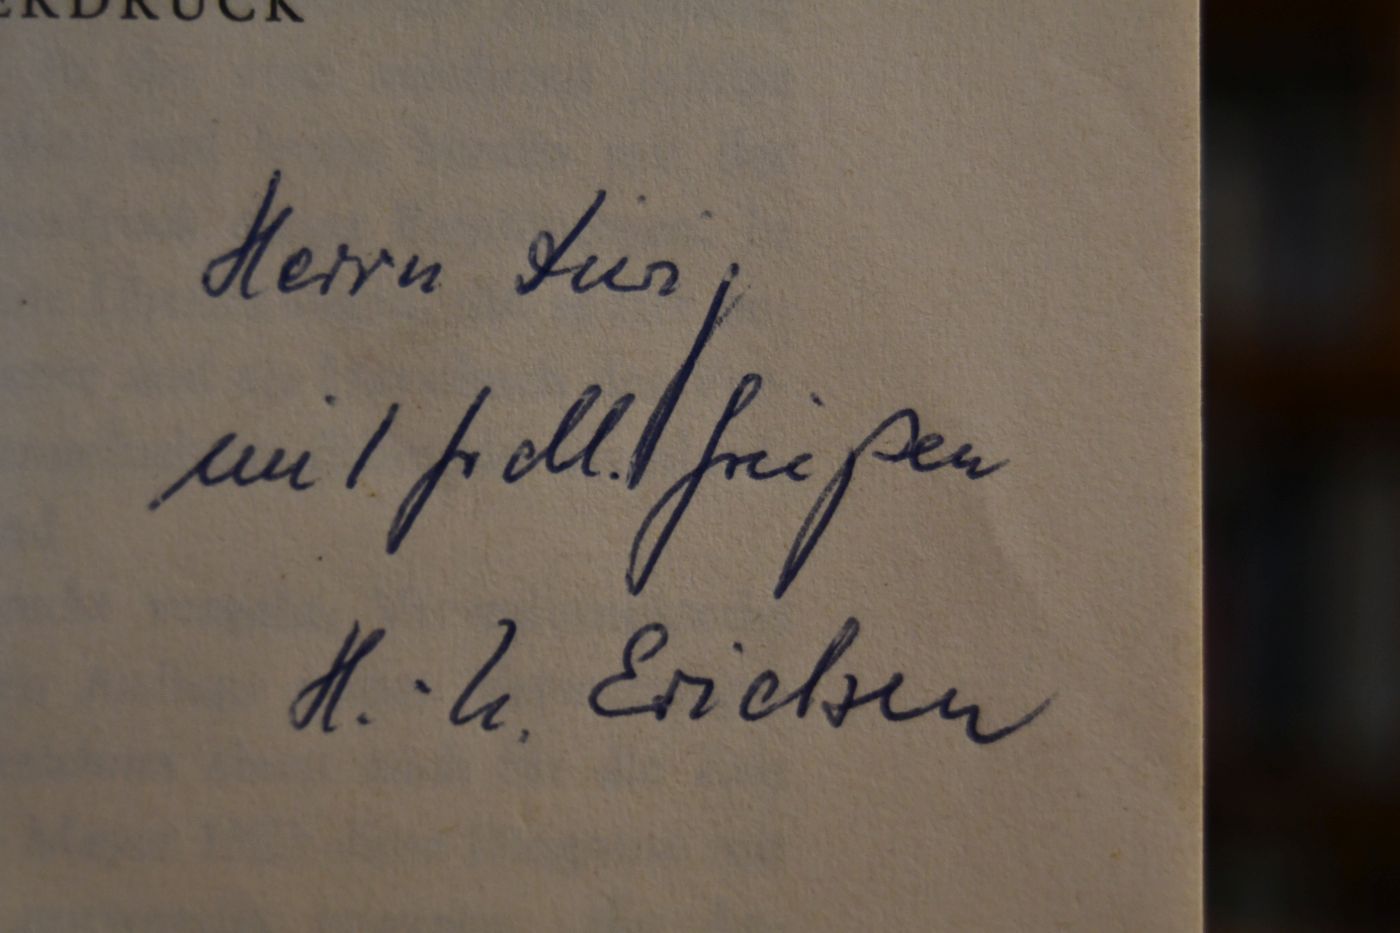 ERDRUCK
Herrn
mit frdll. Grüßen
H.-U. Erichsen